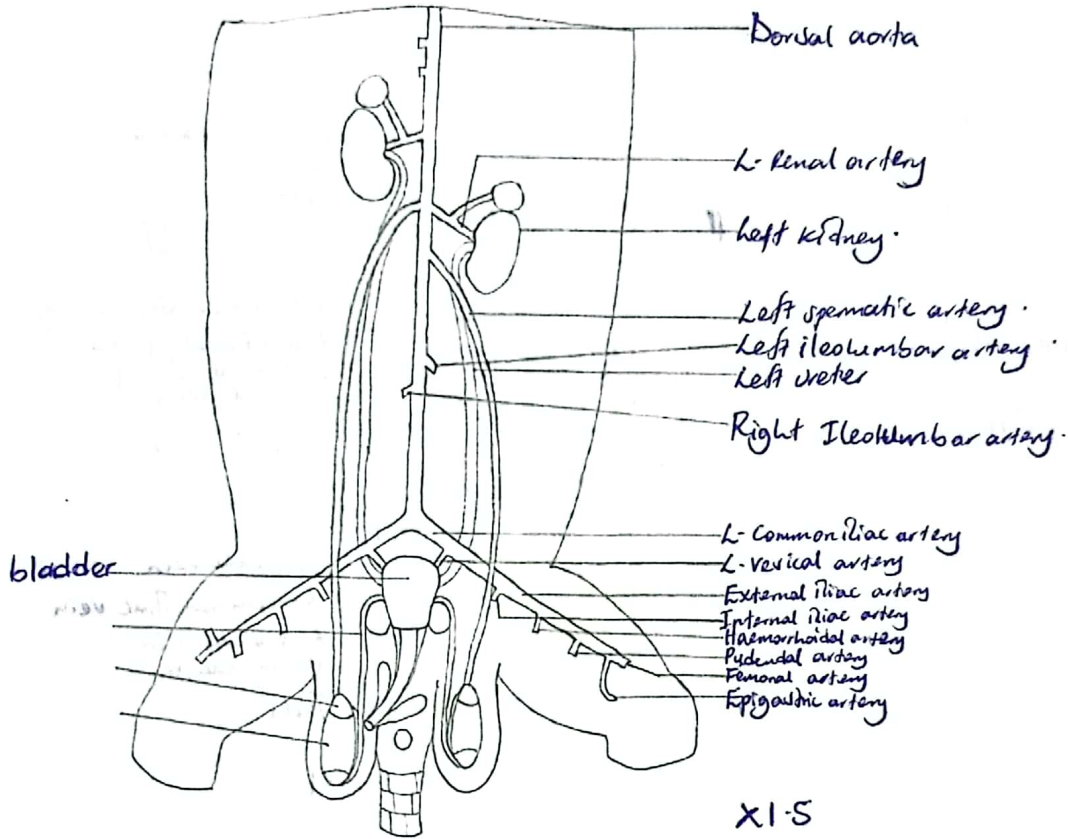 Dorsal aorta
L- Renal artery
Left kidney.
Left spermatic artery.
Left ileolumbar artery.
Left ureter
Right Ileolumbar artery.
L- Common iliac artery
L- vesical artery
External iliac artery
Internal iliac artery
Haemorrhoidal artery
Pudendal artery
Femoral artery
Epigastric artery
bladder
X1.5